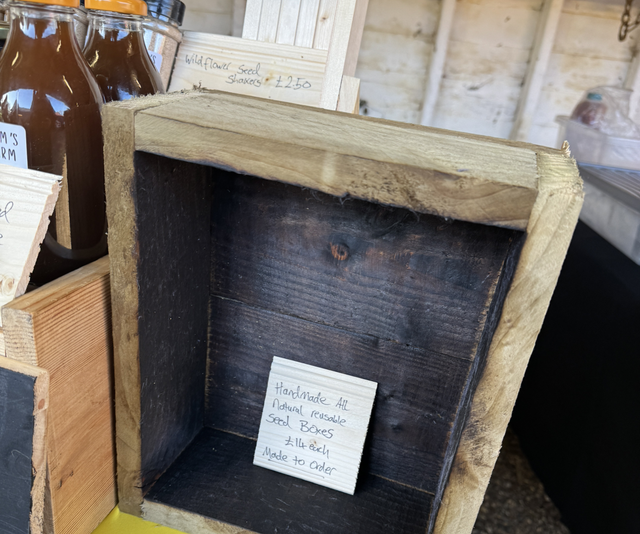 Wildflower Seed
shakers £250
M'S
RM
Handmade All
Natural reusable
Seed Boxes
£14 each
Made to order